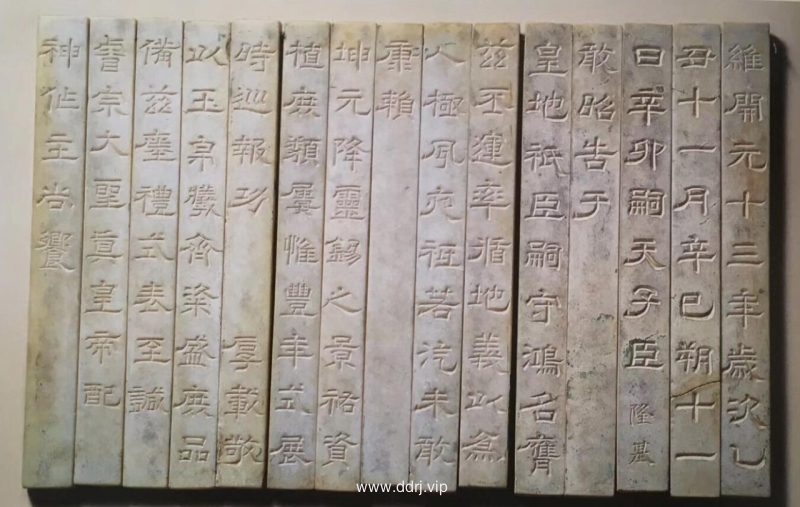 維開元十三年歲次乙
丑十一月辛巳朔十一
日辛卯嗣天子臣隆基
敢昭告于
皇地祇臣嗣守鴻名膺
茲丕運率循地義以為
人極夙夜祗若汔未敢
康賴
坤元降靈錫之景祐資
植庶類屢惟豐年式展
時巡報功 厚載敬
以玉帛犧齊粢盛庶品
備茲瘞禮式表至誠
睿宗大聖真皇帝配
神作主尚饗
www.ddrj.vip